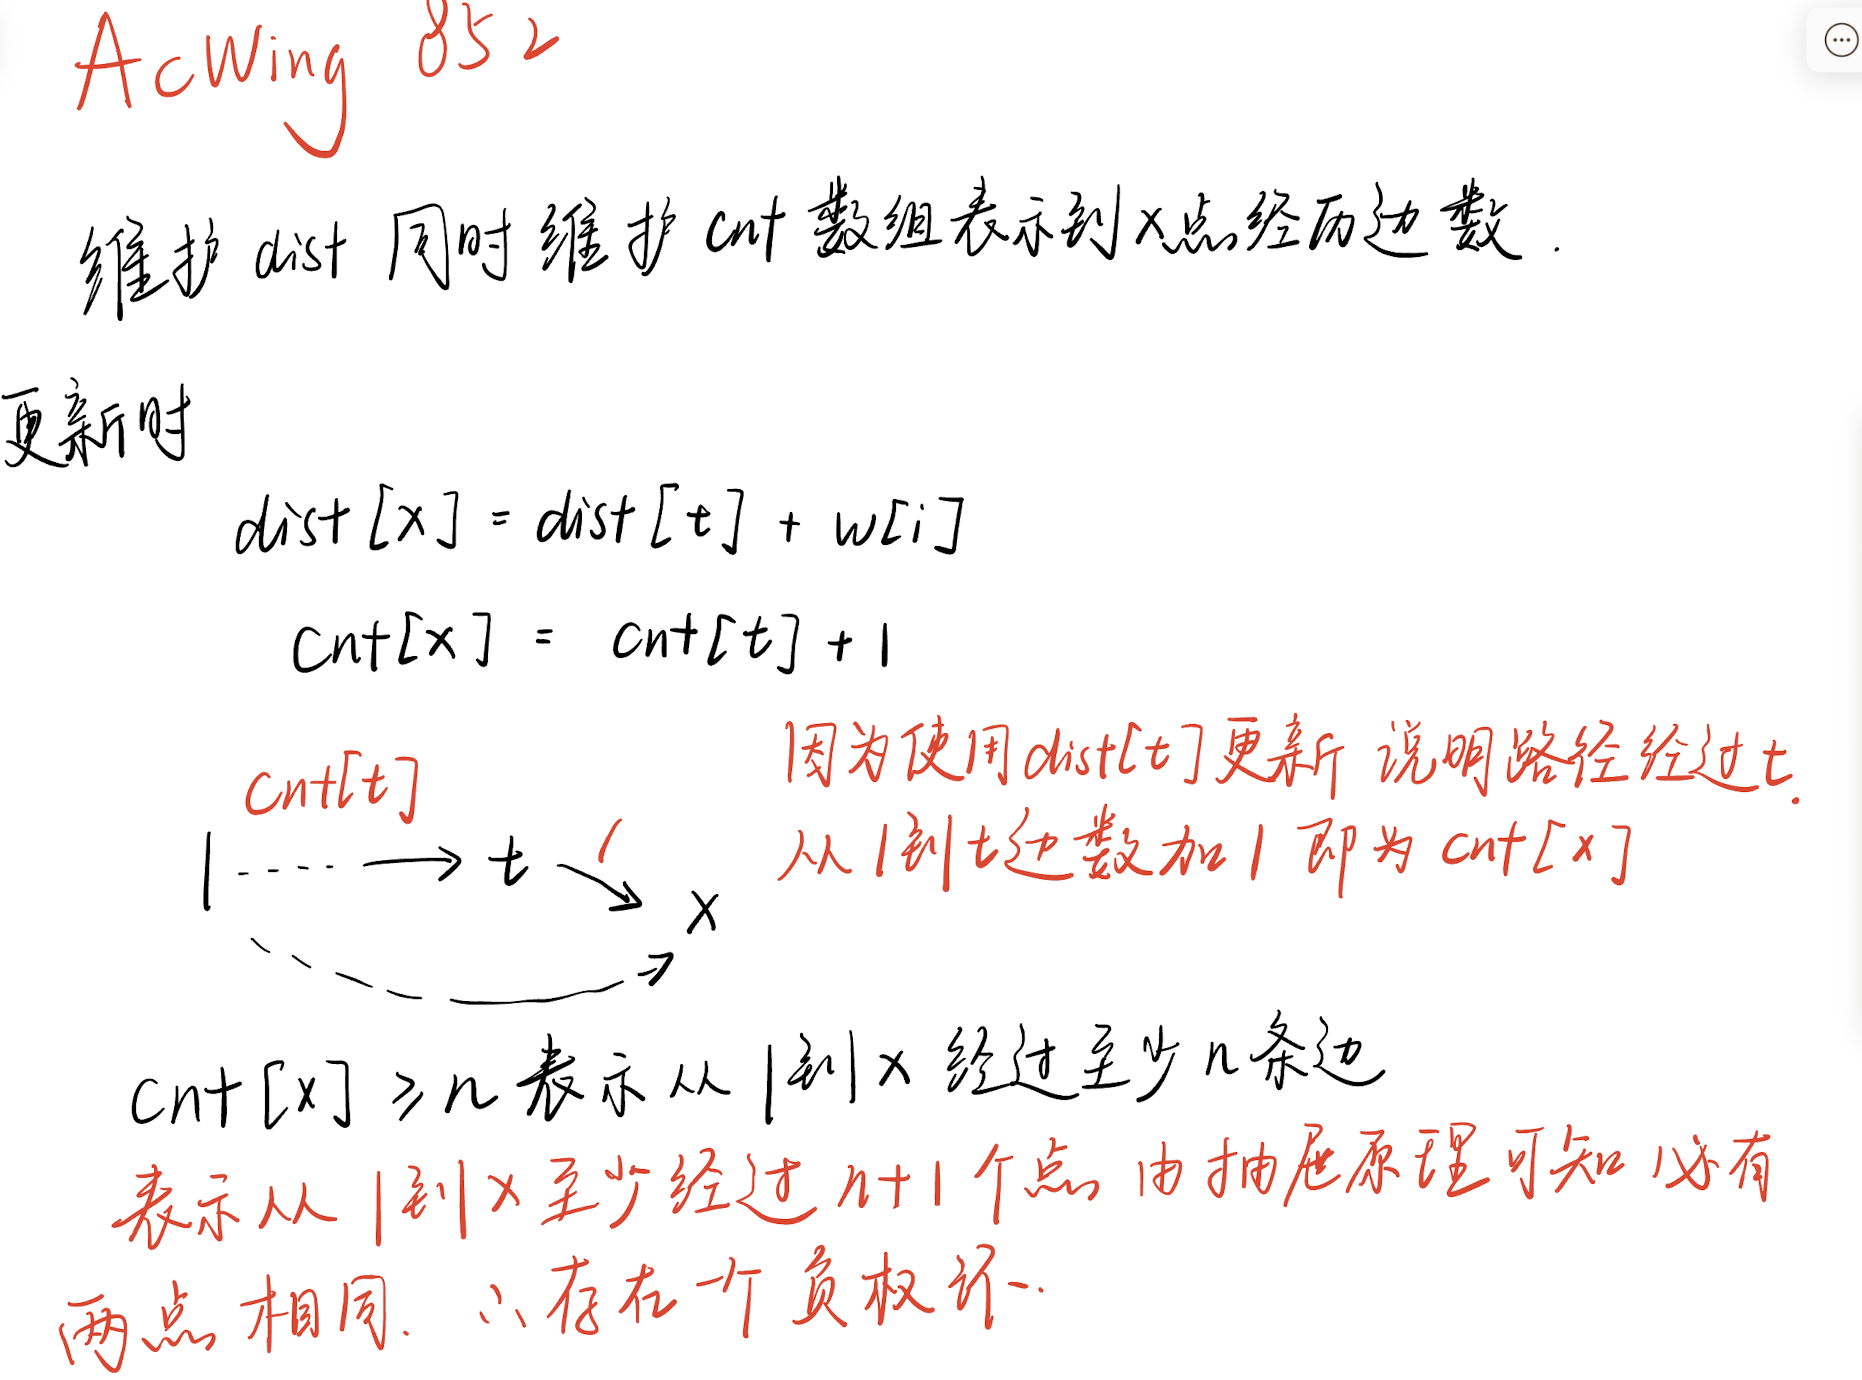 AcWing 852
维护 dist 同时维护 cnt 数组表示到x点经历边数.
更新时
dist[x] = dist[t] + w[i]
cnt[x] = cnt[t] + 1
cnt[t]
因为使用dist[t]更新 说明路径经过t.
1 ---- → t 1
从1到t边数加1即为cnt[x]
x
cnt[x] ≥ n 表示从1到x经过至少n条边
表示从1到x至少经过n+1个点 由抽屉原理可知 必有
两点相同. ∴存在一个负权环.